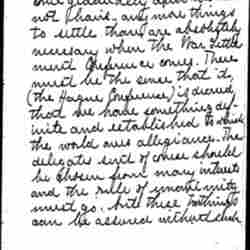 not have any more things
to settle than are absolutely
necessary when the War Settle
ment Conference comes. There
must be the sense that it is,
(the Hague Conference) is sacred,
that we have something def-
inite and established to which
the world owes allegiance. The
delegates sent of course should
be chosen from many interests
and the rule of unanimity
must go. But these both things
can be assured without such